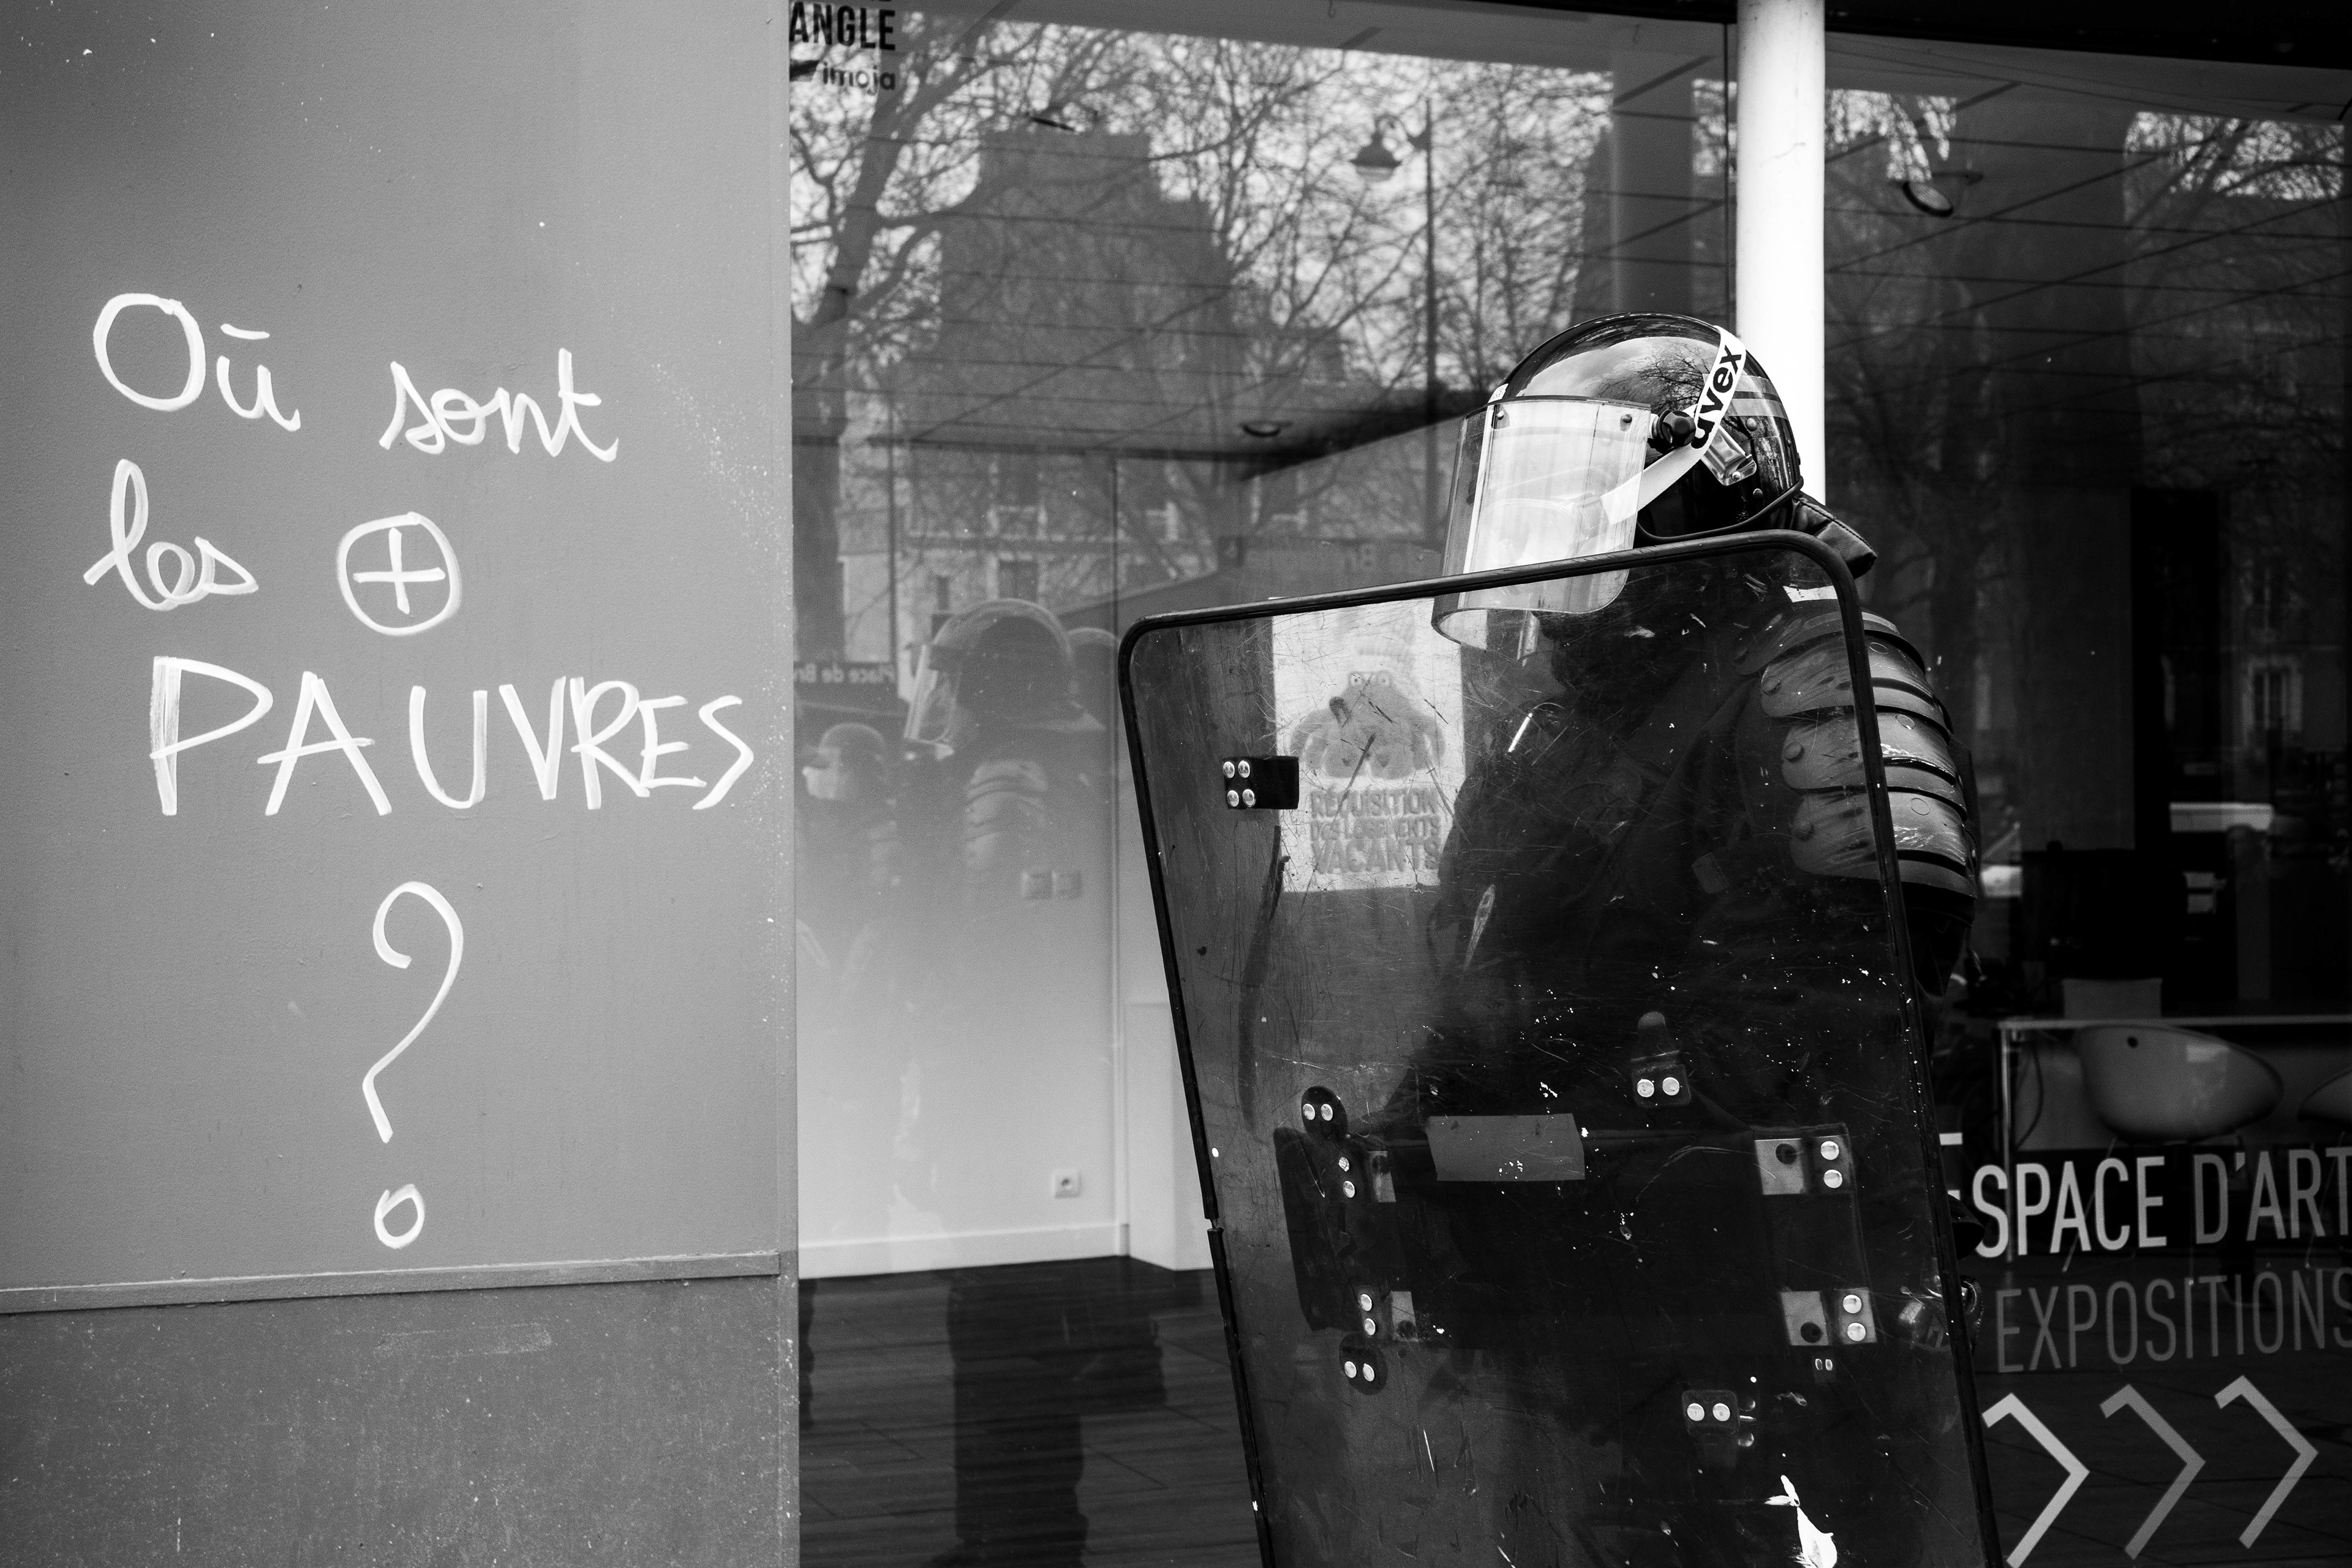 Où sont
les ⊕
PAUVRES
?
ANGLE
imoja
uvex
Place de Br
RÉQUISITION
DES LOGEMENTS
VACANTS
ESPACE D'ART
EXPOSITIONS